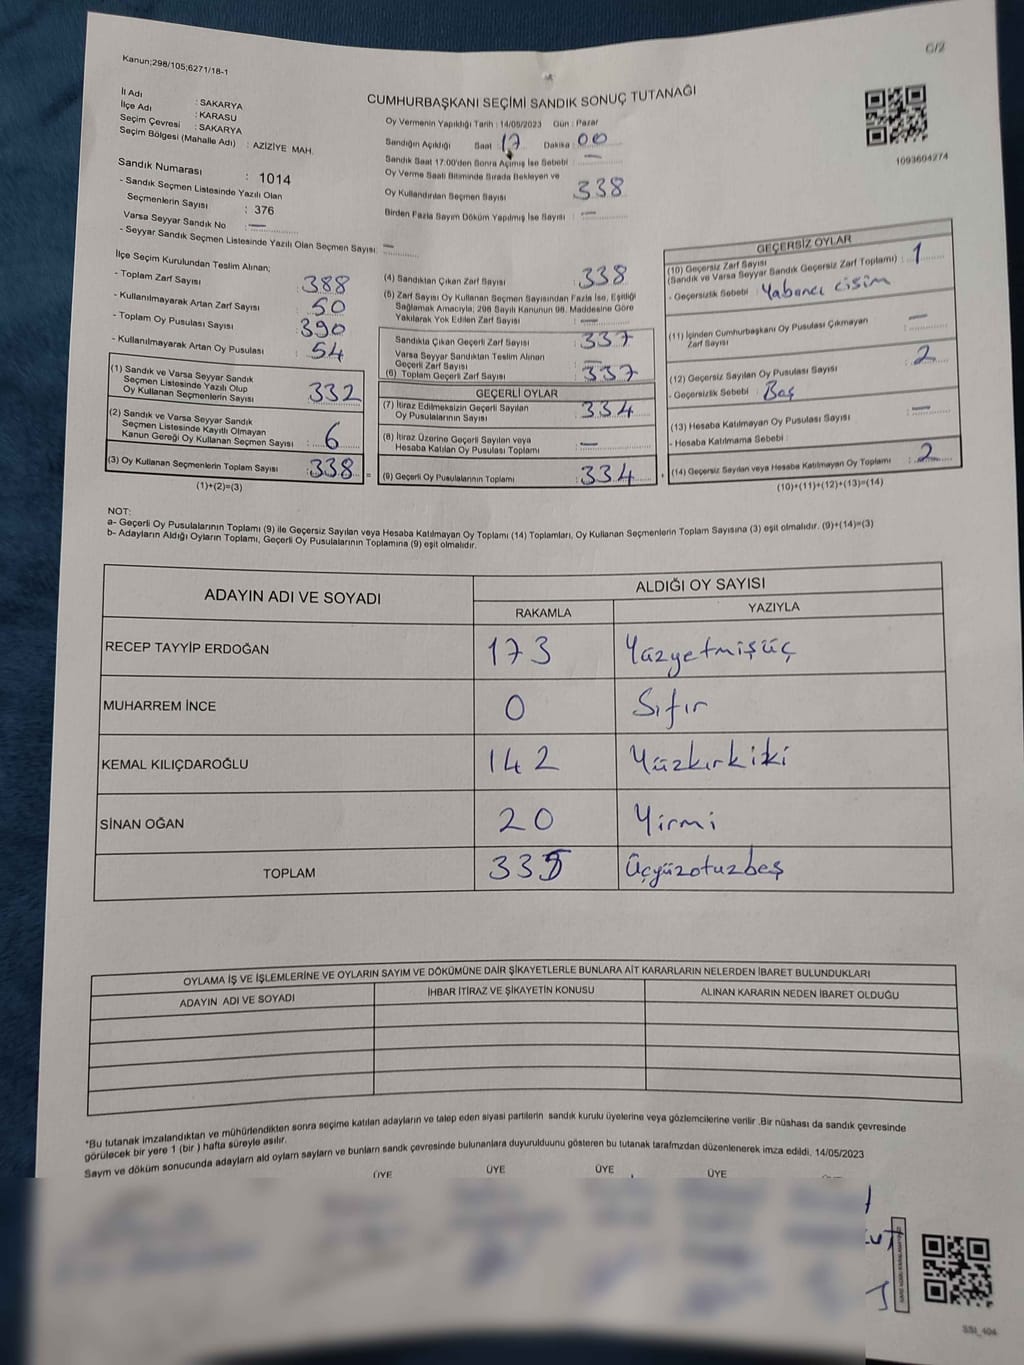 C/2
Kanun;298/105;6271/18-1
İl Adı : SAKARYA
İlçe Adı : KARASU
Seçim Çevresi : SAKARYA
Seçim Bölgesi (Mahalle Adı) : AZİZİYE MAH.
Sandık Numarası : 1014
- Sandık Seçmen Listesinde Yazılı Olan
Seçmenlerin Sayısı : 376
Varsa Seyyar Sandık No : —
- Seyyar Sandık Seçmen Listesinde Yazılı Olan Seçmen Sayısı : —
CUMHURBAŞKANI SEÇİMİ SANDIK SONUÇ TUTANAĞI
Oy Vermenin Yapıldığı Tarih : 14/05/2023 Gün : Pazar
Sandığın Açıldığı Saat : 17 Dakika : 00
Sandık Saat 17:00'den Sonra Açımış İse Sebebi : —
Oy Verme Saati Bitiminde Sırada Bekleyen ve
Oy Kullandırılan Seçmen Sayısı : 338
Birden Fazla Sayım Döküm Yapılmış İse Sayısı : —
1093604274
İlçe Seçim Kurulundan Teslim Alınan;
- Toplam Zarf Sayısı : 388
- Kullanılmayarak Artan Zarf Sayısı : 50
- Toplam Oy Pusulası Sayısı : 390
- Kullanılmayarak Artan Oy Pusulası : 54
(1) Sandık ve Varsa Seyyar Sandık
Seçmen Listesinde Yazılı Olup
Oy Kullanan Seçmenlerin Sayısı : 332
(2) Sandık ve Varsa Seyyar Sandık
Seçmen Listesinde Kayıtlı Olmayan
Kanun Gereği Oy Kullanan Seçmen Sayısı : 6
(3) Oy Kullanan Seçmenlerin Toplam Sayısı : 338
(1)+(2)=(3)
(4) Sandıktan Çıkan Zarf Sayısı : 338
(5) Zarf Sayısı Oy Kullanan Seçmen Sayısından Fazla İse, Eşitliği
Sağlamak Amacıyla; 298 Sayılı Kanunun 98. Maddesine Göre
Yakılarak Yok Edilen Zarf Sayısı : —
Sandıkta Çıkan Geçerli Zarf Sayısı : 337
Varsa Seyyar Sandıktan Teslim Alınan
Geçerli Zarf Sayısı : —
(6) Toplam Geçerli Zarf Sayısı : 337
GEÇERLİ OYLAR
(7) İtiraz Edilmeksizin Geçerli Sayılan
Oy Pusulalarının Sayısı : 334
(8) İtiraz Üzerine Geçerli Sayılan veya
Hesaba Katılan Oy Pusulası Toplamı : —
= (9) Geçerli Oy Pusulalarının Toplamı : 334
GEÇERSİZ OYLAR
(10) Geçersiz Zarf Sayısı
(Sandık ve Varsa Seyyar Sandık Geçersiz Zarf Toplamı) : 1
- Geçersizlik Sebebi : Yabancı cisim
(11) İçinden Cumhurbaşkanı Oy Pusulası Çıkmayan
Zarf Sayısı : —
(12) Geçersiz Sayılan Oy Pusulası Sayısı : 2
- Geçersizlik Sebebi : Boş
(13) Hesaba Katılmayan Oy Pusulası Sayısı : —
- Hesaba Katılmama Sebebi :
+ (14) Geçersiz Sayılan veya Hesaba Katılmayan Oy Toplamı : 2
(10)+(11)+(12)+(13)=(14)
NOT:
a- Geçerli Oy Pusulalarının Toplamı (9) ile Geçersiz Sayılan veya Hesaba Katılmayan Oy Toplamı (14) Toplamları, Oy Kullanan Seçmenlerin Toplam Sayısına (3) eşit olmalıdır. (9)+(14)=(3)
b- Adayların Aldığı Oyların Toplamı, Geçerli Oy Pusulalarının Toplamına (9) eşit olmalıdır.
ADAYIN ADI VE SOYADI ALDIĞI OY SAYISI
RAKAMLA YAZIYLA
RECEP TAYYİP ERDOĞAN 173 Yüzyetmişüç
MUHARREM İNCE 0 Sıfır
KEMAL KILIÇDAROĞLU 142 Yüzkırkiki
SİNAN OĞAN 20 Yirmi
TOPLAM 335 Üçyüzotuzbeş
OYLAMA İŞ VE İŞLEMLERİNE VE OYLARIN SAYIM VE DÖKÜMÜNE DAİR ŞİKAYETLERLE BUNLARA AİT KARARLARIN NELERDEN İBARET BULUNDUKLARI
ADAYIN ADI VE SOYADI İHBAR İTİRAZ VE ŞİKAYETİN KONUSU ALINAN KARARIN NEDEN İBARET OLDUĞU
*Bu tutanak imzalandıktan ve mühürlendikten sonra seçime katılan adayların ve talep eden siyasi partilerin sandık kurulu üyelerine veya gözlemcilerine verilir .Bir nüshası da sandık çevresinde
görülecek bir yere 1 (bir ) hafta süreyle asılır.
Sayım ve döküm sonucunda adayların ald oyların sayları ve bunların sandk çevresinde bulunanlara duyurulduunu gösteren bu tutanak tarafmzdan düzenlenerek imza edildi. 14/05/2023
ÜYE ÜYE ÜYE ÜYE
SSI_404